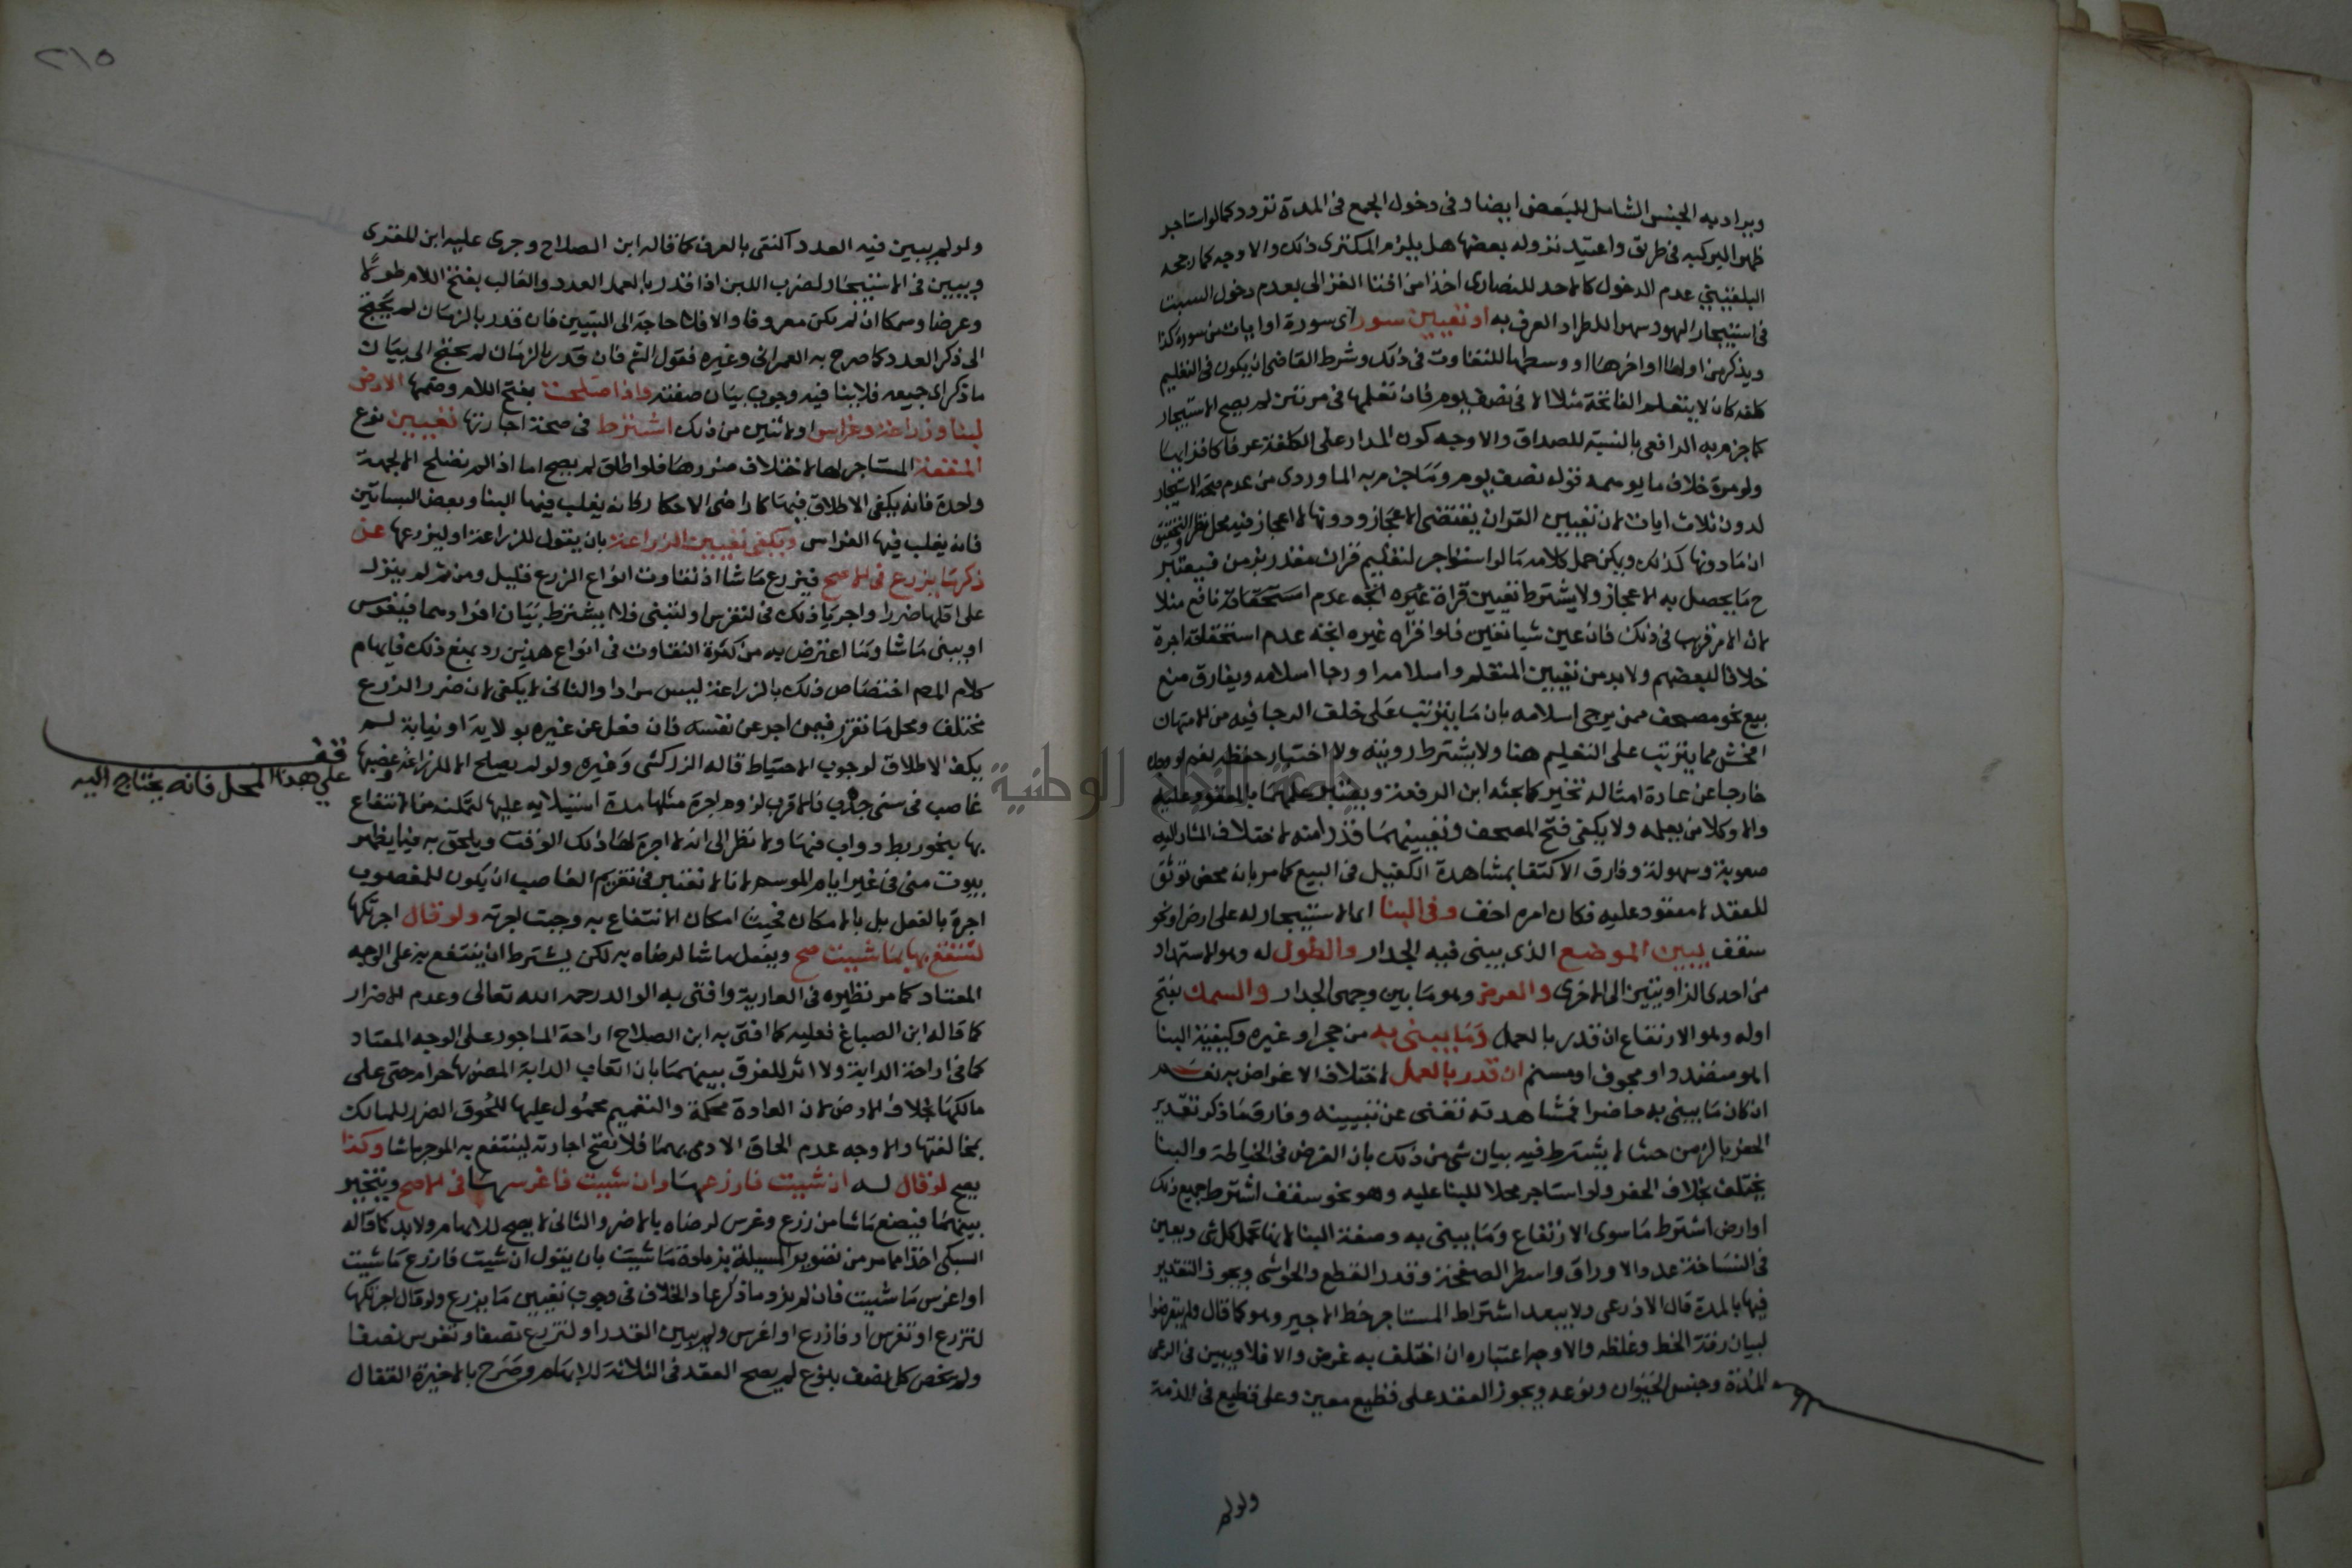 ويراد به الجنس الشامل للبعض ايضا وفى دخول الجمع فى المدة تردد كما لو استاجر
ظهرا ليركبه فى طريق واعتيد نزوله بعضها هل يلزم المكترى ذلك والاوجه كما رجحه
البلقينى عدم الدخول كالاحد للنصارى اخذا من افتا الغزالى بعدم دخول السبت
فى استيجار اليهود شهرا لاطراد العرف به او تعيين سور اى سورة او ايات من سورة كذا
ويذكر من اولها او اخرها او وسطها للتفاوت فى ذلك وشرط القاضى ان يكون فى التعليم
كلفة كان لا يتعلم الفاتحة مثلا الا فى نصف يوم فان تعلمها فى مرتين لم يصح الاستيجار
كما جزم به الرافعى بالنسبة للصداق والاوجه كون المدار على الكلفة عرفا كاقرايها
ولو مرة خلاف ما يوهمه قوله نصف يوم وما جزم به الماوردى من عدم صحة الاستيجار
لدون ثلاث ايات لان تعيين القران يقتضى الاعجاز ودونها لا اعجاز فيه محل نظر والتحقيق
ان ما دونها كذلك ويمكن حمل كلامه ما لو استاجر لتعليم قران مقدر بزمن فيعتبر
ح ما يحصل به الاعجاز ولا يشترط تعيين قراة نافع مثلا
لان الامر قريب فى ذلك فان عين شيا تعين فلو اقراه غيره اتجه عدم استحقاقه اجرة
خلافا لبعضهم ولا بد من تعيين المتعلم واسلامه او رجا اسلامه ويفارق منع
بيع نحو مصحف ممن يرجى اسلامه بان ما يترتب على خلف الرجا فيه من الامتهان
افحش مما يترتب على التعليم هنا ولا يشترط رويته ولا اختبار حفظه نعم لو وجده
خارجا عن عادة امثاله تخير كما بحثه ابن الرفعة ويعتبر علمهما بالمعقود عليه
والا وكلا من يعلمه ولا يكفى فتح المصحف وتعيينهما قدرا منه لاختلاف المشار اليه
صعوبة وسهولة وفارق الاكتفا بمشاهدة الكفيل فى البيع كما مر بانه محض توثق
للعقد لا معقود عليه فكان امره اخف وفى البنا اى الاستيجار له على ارض او نحو
سقف يبين الموضع الذى يبنى فيه الجدار والطول له وهو الامتداد
من احدى الزاويتين الى الاخرى والعرض وهو ما بين وجهى الجدار والسمك بفتح
اوله وهو الارتفاع ان قدر بالعمل وما يبنى به من حجر او غيره وكيفية البنا
اهو منضد او مجوف او مسنم ان قدر بالعمل لاختلاف الاغراض به نعم
ان كان ما يبنى به حاضرا فمشاهدته تغنى عن تبيينه وفارق ما ذكر تقدير
الحفر بالزمن حيث لا يشترط فيه بيان شى من ذلك بان الغرض فى الخياطة والبنا
يختلف بخلاف الحفر ولو استاجر محلا للبنا عليه وهو نحو سقف اشترط جميع ذلك
او ارض اشترط ما سوى الارتفاع وما يبنى به وصفة البنا لانها تحمل كل شى ويبين
فى النساخة عدد الاوراق واسطر الصفحة وقدر القطع والحواشى ويجوز التقدير
فيها بالمدة قال الاذرعى ولا يبعد اشتراط المستاجر خط الاجير وهو كما قال ولم يتعرضوا
لبيان رقة الخط وغلظه والاوجه اعتباره ان اختلف به غرض والا فلا ويبين فى الرعى
المدة وجنس الحيوان ونوعه ويجوز العقد على قطيع معين وعلى قطيع فى الذمة
ولولم
٢١٥
ولو لم يبين فيه العدد اكتفى بالعرف كما قاله ابن الصلاح وجرى عليه ابن المقرى
ويبين فى الاستيجار لضرب اللبن اذا قدر بالعمل العدد والقالب بفتح اللام طولا
وعرضا وسمكا ان لم يكن معروفا والا فلا حاجة الى التبيين فان قدر بالزمان لم يحتج
الى ذكر العدد كما صرح به العمرانى وغيره فقول الشم فان قدر بالزمان لم يحتج الى بيان
ما ذكر اى جميعه فلا ينافيه وجوب بيان صفته واذا صلحت بفتح اللام وضمها الارض
لبنا وزراعة وغراس او لاثنين من ذلك اشترط فى صحة اجارتها تعيين نوع
المنفعة المستاجر لها لاختلاف ضررها فلو اطلق لم يصح اما اذا لم تصلح الا لجهة
واحدة فانه يكفى الاطلاق فيها كاراضى الاحكار فانه يغلب فيها البنا وبعض البساتين
فانه يغلب فيها الغراس ويكفى تعيين الزراعة بان يقول للزراعة او ليزرعها عن
ذكر ما يزرع فى الاصح فيزرع ما شا اذ تفاوت انواع الزرع قليل ومن ثم لم ينزل
على اقلها ضررا واجريا ذلك فى لتغرس او لتبنى فلا يشترط بيان افرادهما فيغرس
او يبنى ما شا وما اعترض به من كثرة التفاوت فى انواع هذين رد بمنع ذلك فايهام
كلام المص اختصاص ذلك بالزراعة ليس مرادا والثانى لا يكفى لان ضرر الزرع
مختلف ومحل ما تقرر فيمن اجر عن نفسه فان فعل عن غيره بولاية او نيابة لم
يكف الاطلاق لوجوب الاحتياط قاله الزركشى وغيره ولو لم يصلح الا للزراعة وغصبها
غاصب فى سنى جدب فالاقرب لزوم اجرة مثلها مدة استيلايه عليها لتمكنه من الانتفاع
بها بنحو ربط دواب فيها ولا نظر الى انه لا اجرة لها ذلك الوقت ويلحق به فيما يظهر
بيوت منى فى غير ايام الموسم لانا لا نعتبر فى تغريم الغاصب ان يكون للمغصوب
اجرة بالفعل بل بالامكان فحيث امكان الانتفاع به وجبت اجرته ولو قال اجرتكها
لتنتفع بها بما شيت صح ويفعل ما شا لرضاه به لكن يشترط ان ينتفع به على الوجه
المعتاد كما مر نظيره فى العارية وافتى به الوالد رحمه الله تعالى وعدم الاضرار
كما قاله ابن الصباغ فعليه كما افتى به ابن الصلاح اراحة الماجور على الوجه المعتاد
كما فى اراحة الدابة ولا اثر للفرق بينهما بان اتعاب الدابة المضر بها حرام حتى على
مالكها بخلاف الارض لان العادة محكمة والتعميم محمول عليها للحوق الضرر للمالك
بمخالفتها والاوجه عدم الحاق الادمى بهما فلا تصح اجارته لينتفع به الموجر ما شا وكذا
يصح لو قال له ان شيت فازرعها وان شيت فاغرسها فى الاصح ويتخير
بينهما فيصنع ما شا من زرع وغرس لرضاه بالاضر والثانى لا يصح للابهام ولا بد كما قاله
السبكى اخذا مما مر من تصوير المسيلة بزيادة ما شيت بان يقول ان شيت فازرع ما شيت
او اغرس ما شيت فان لم يزد ما ذكر عاد الخلاف فى وجوب تعيين ما يزرع ولو قال اجرتكها
لتزرع او تغرس او فازرع او اغرس ولم يبين القدر او لتزرع نصفا وتغرس نصفا
ولم يخص كل نصف بنوع لم يصح العقد فى الثلاثة للابهام وصرح بالاخيرة القفال
قف
على هذا المحل فانه يحتاج اليه
جامعة النجاح الوطنية